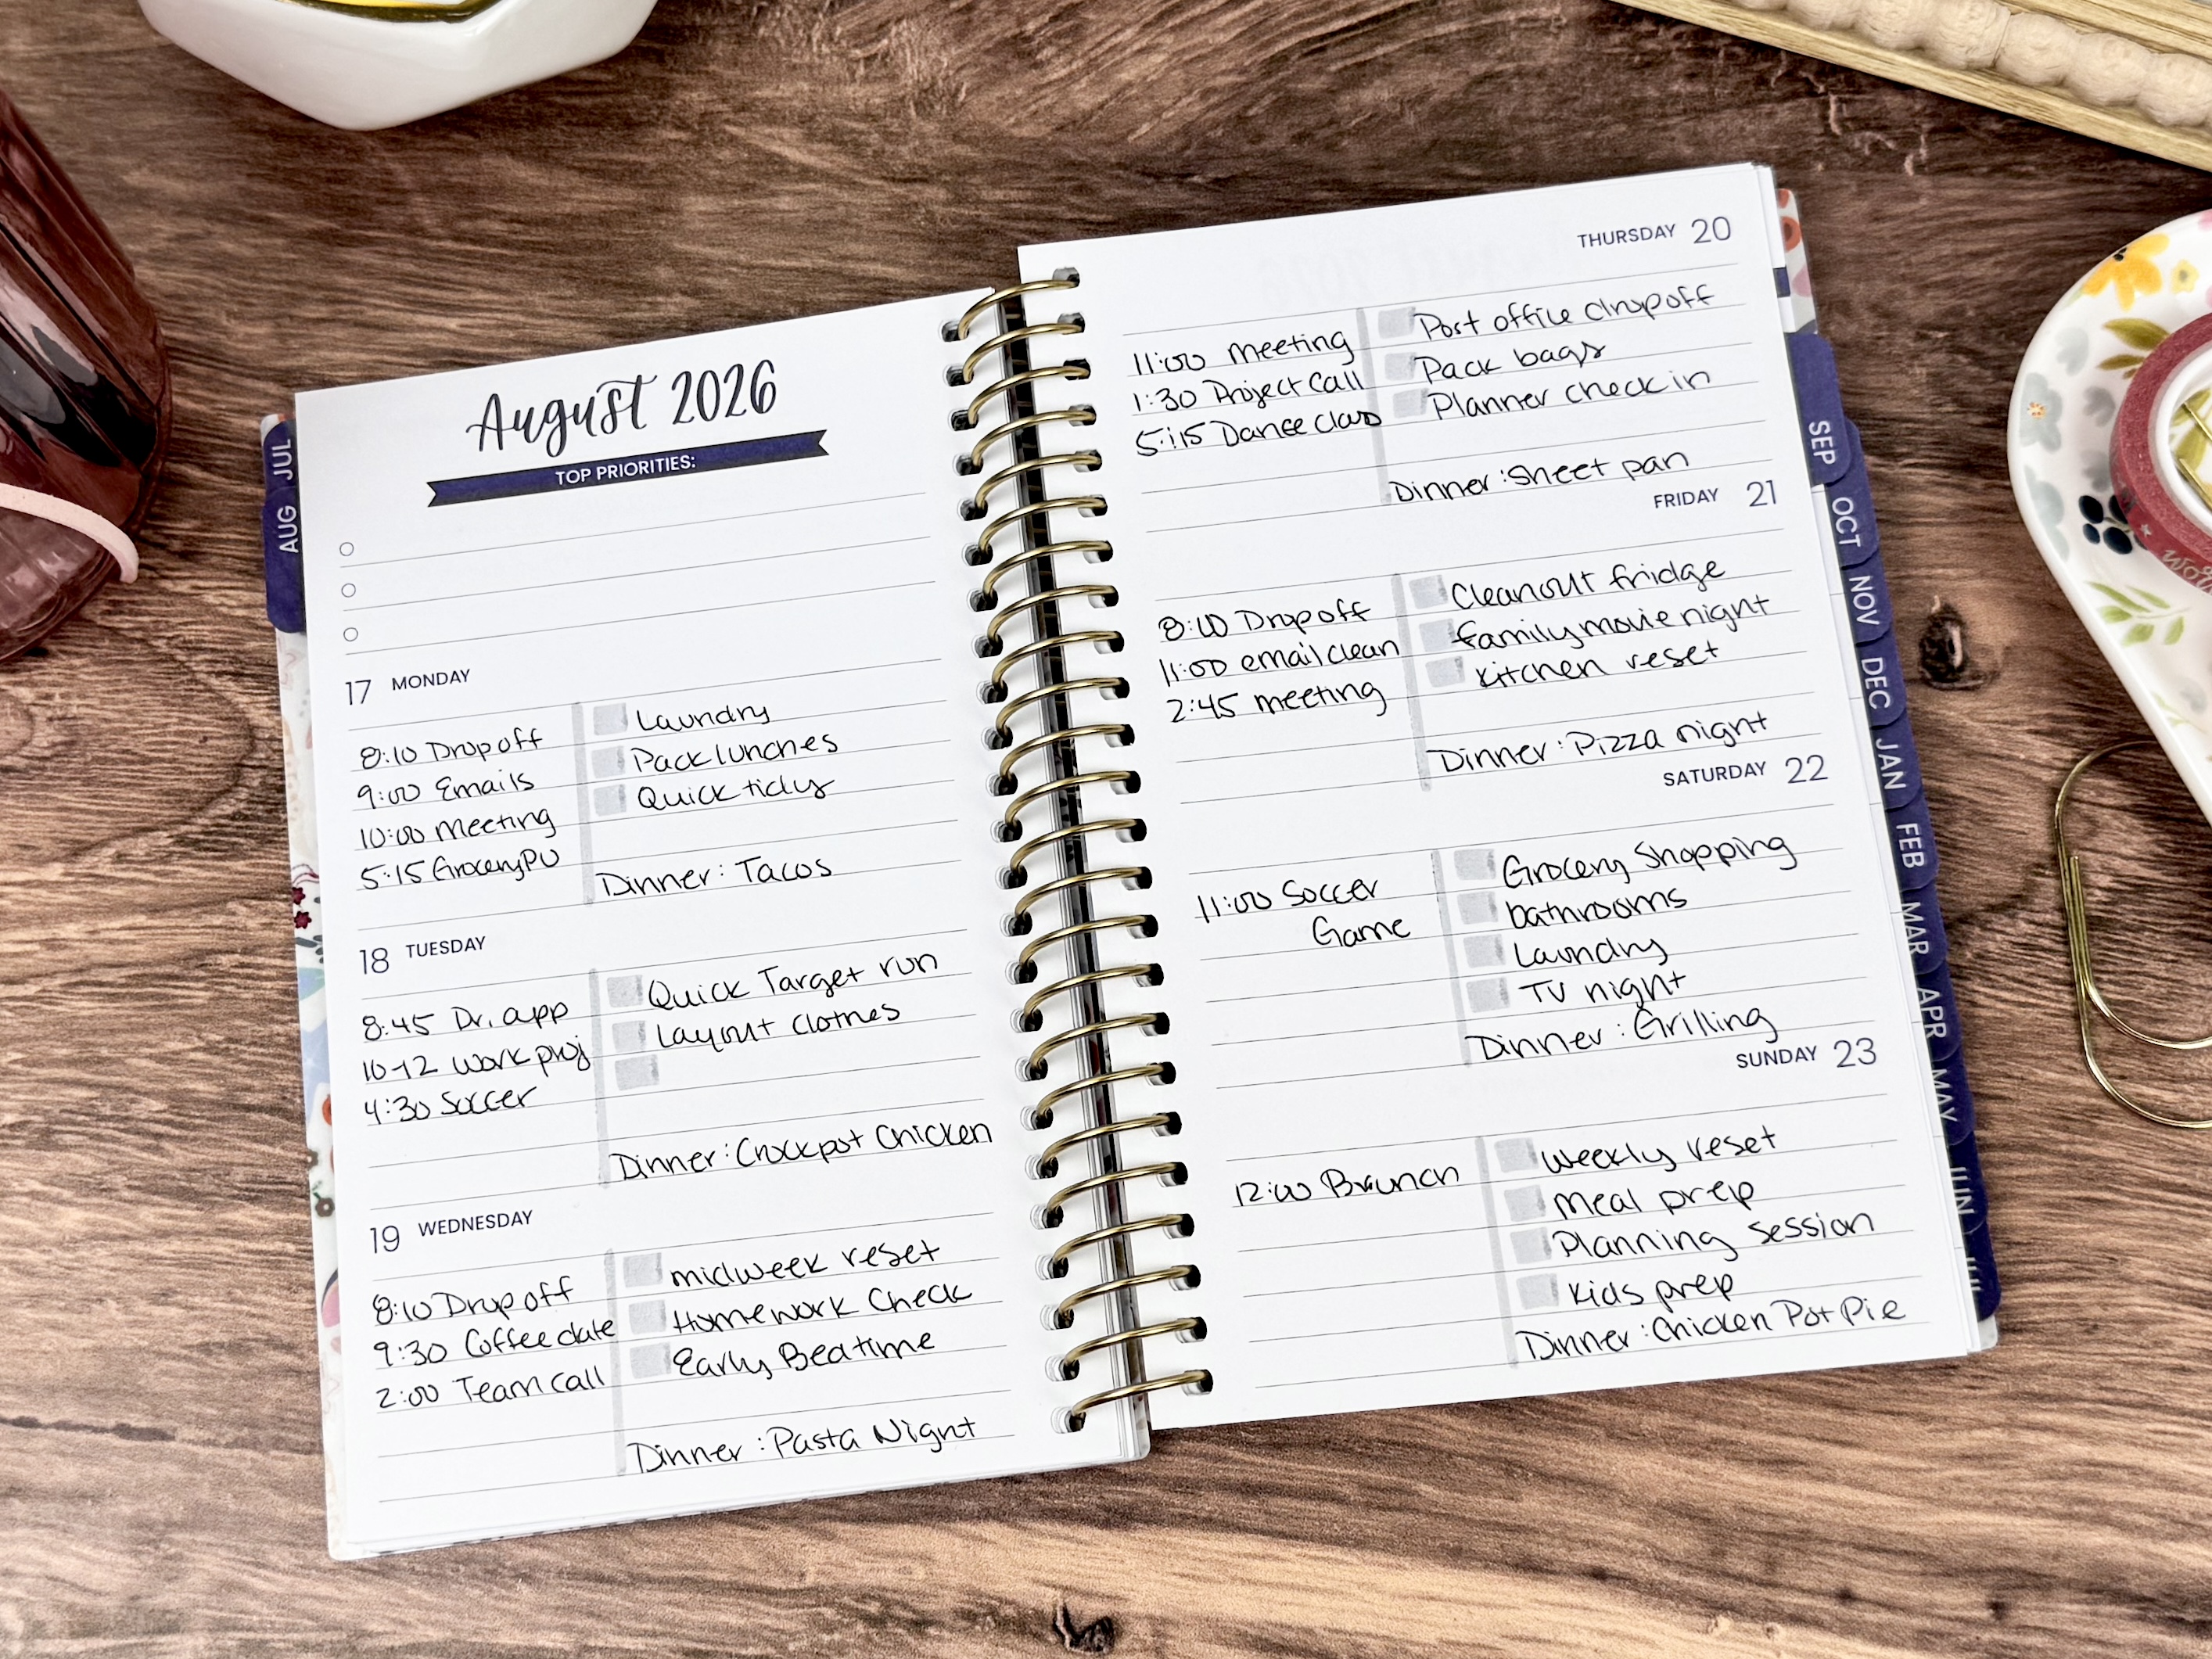 August 2026
TOP PRIORITIES:
17 MONDAY
8:10 Drop off
9:00 Emails
10:00 Meeting
5:15 Grocery PU
Laundry
Pack lunches
Quick tidy
Dinner: Tacos
18 TUESDAY
8:45 Dr. app
10-12 work proj
4:30 Soccer
Quick Target run
Layout clothes
Dinner: Crockpot Chicken
19 WEDNESDAY
8:10 Drop off
9:30 Coffee date
2:00 Team call
midweek reset
Homework Check
Early Bedtime
Dinner: Pasta Night
JUL
AUG
THURSDAY 20
11:00 Meeting
1:30 Project Call
5:15 Dance class
Post office dropoff
Pack bags
Planner check in
Dinner: Sheet pan
FRIDAY 21
8:10 Drop off
11:00 email clean
2:45 meeting
Cleanout fridge
family movie night
kitchen reset
Dinner: Pizza night
SATURDAY 22
11:00 Soccer
Game
Grocery Shopping
bathrooms
Laundry
TV night
Dinner: Grilling
SUNDAY 23
12:00 Brunch
weekly reset
Meal prep
Planning session
Kids prep
Dinner: Chicken Pot Pie
SEP
OCT
NOV
DEC
JAN
FEB
MAR
APR
MAY
JUN